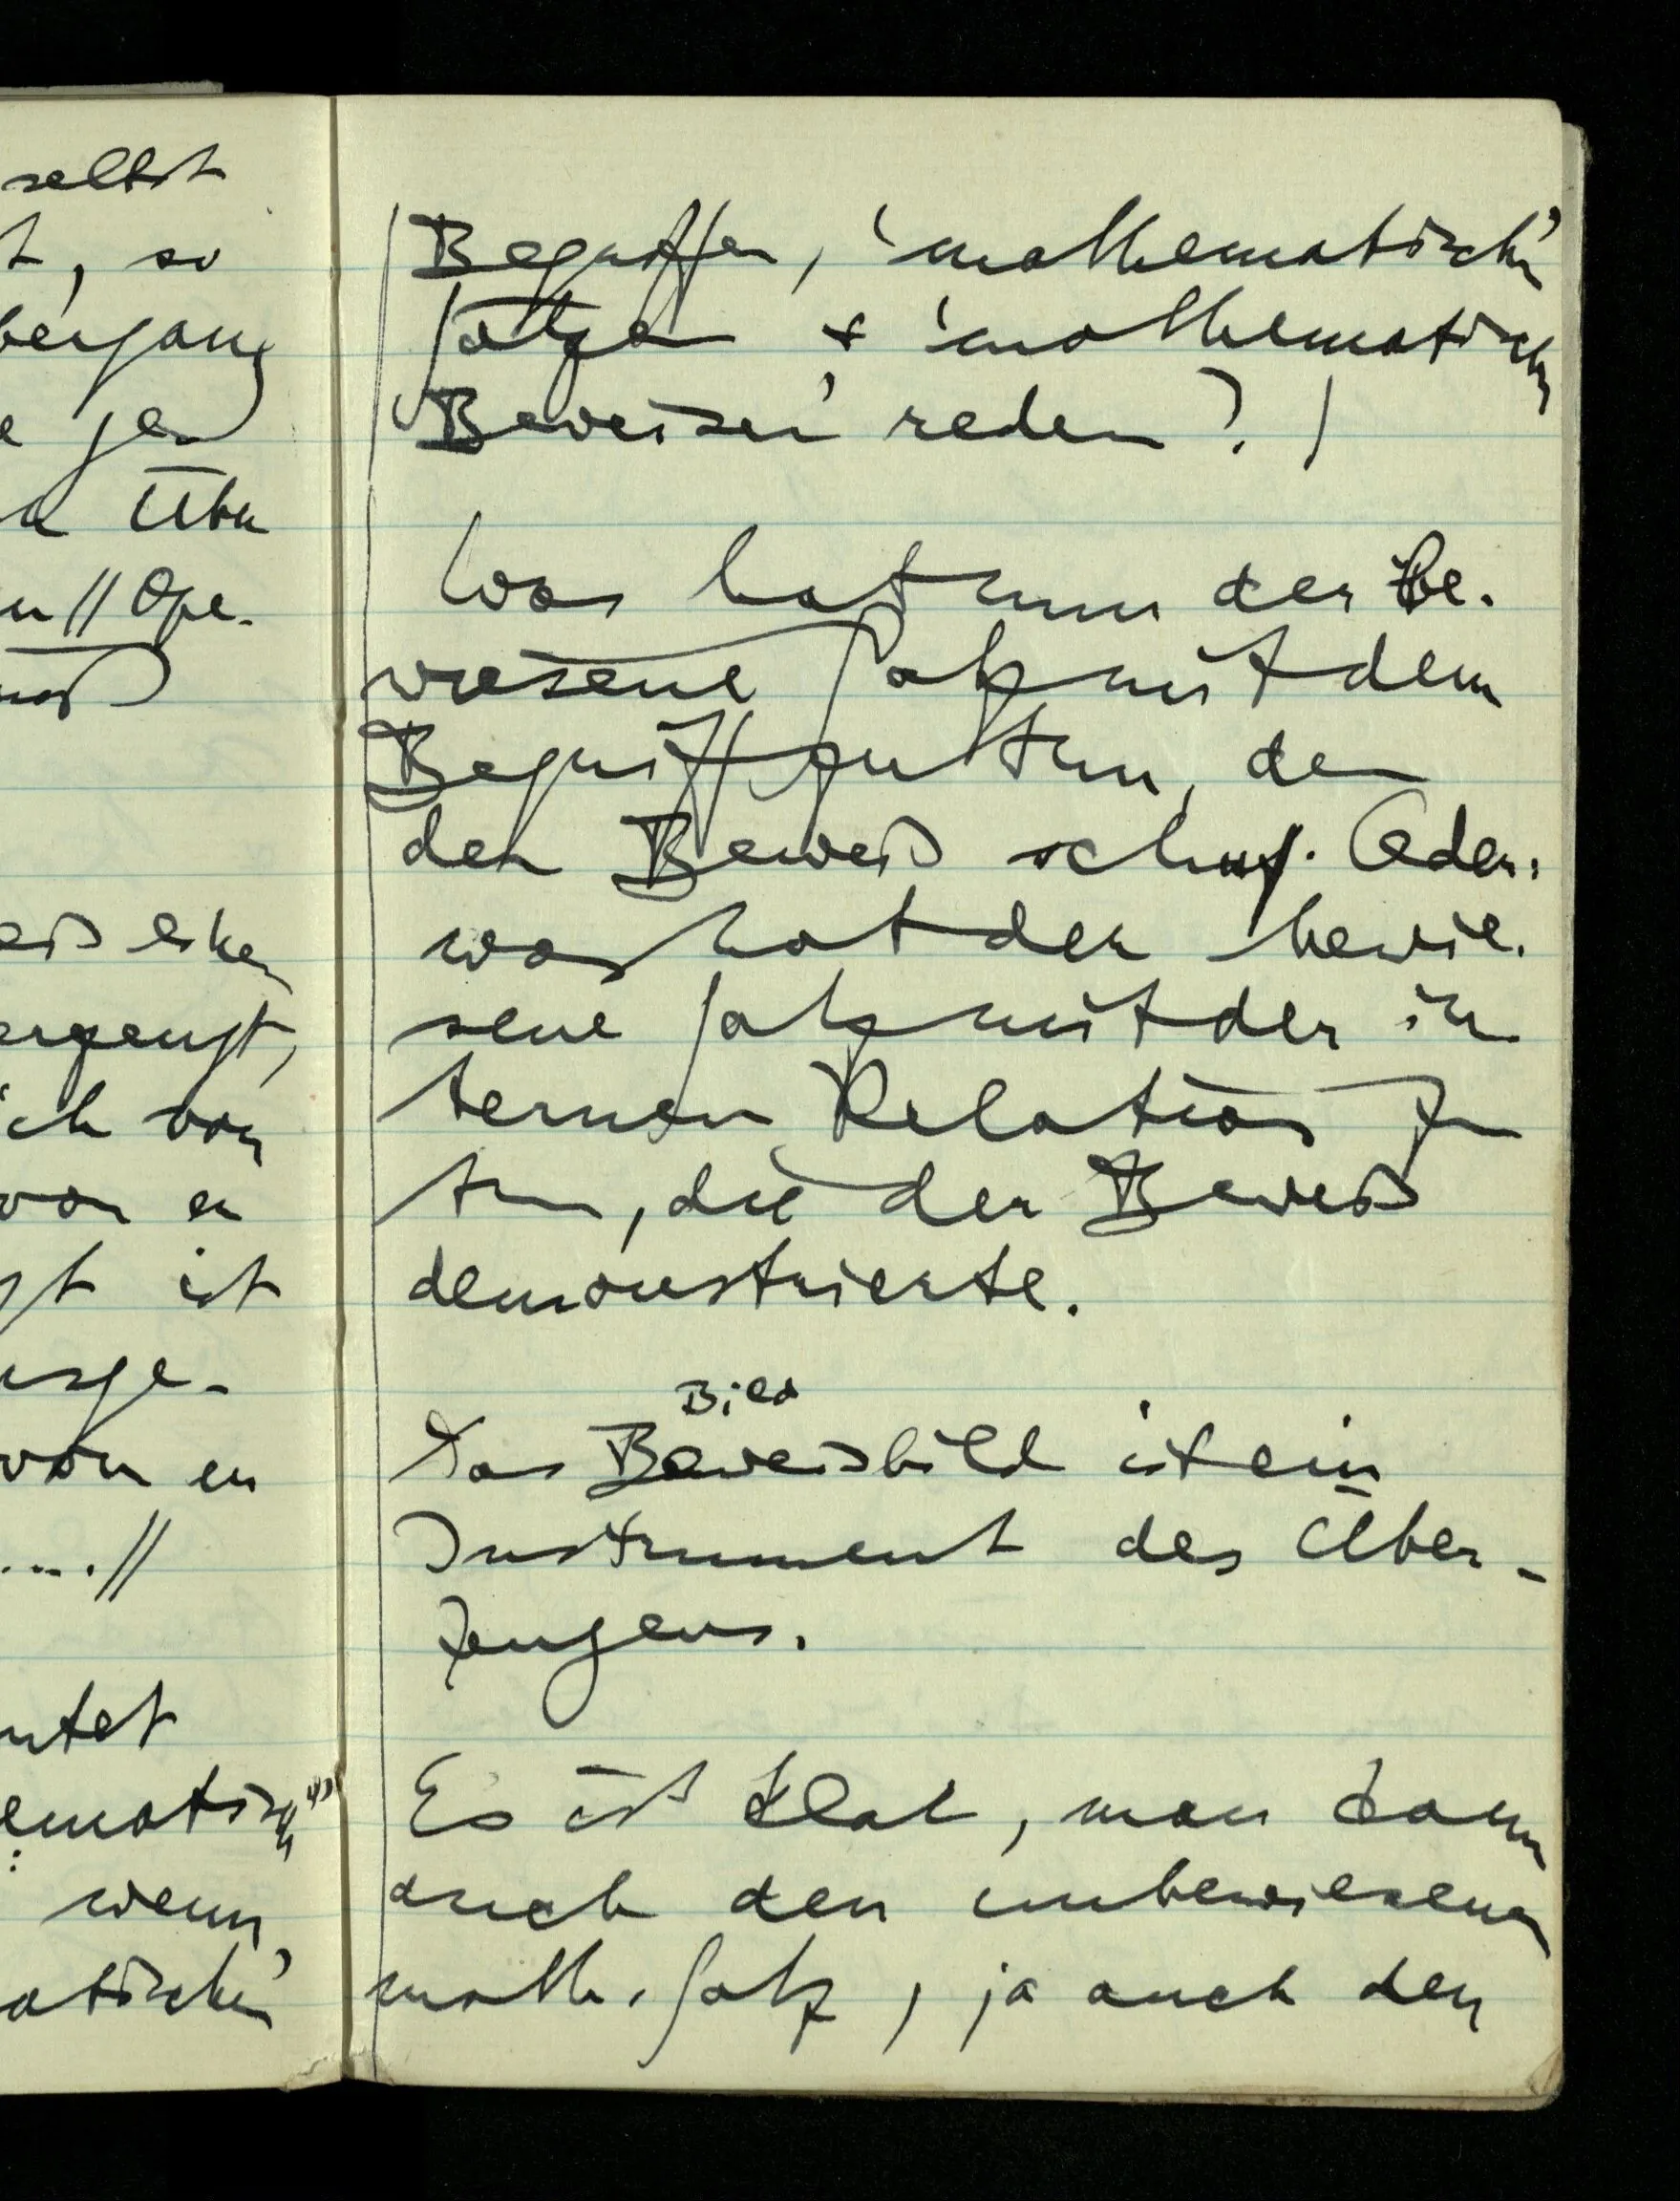 selbst
t, so
bergang
e ge
Über
n // Ope-
muß
eis
ich von
von er
st ist
usge-
von er
....//
utet
ematisch"
wenn
atischen'
Begriffen, 'mathematischen
Sätzen & 'mathematischen
Beweisen' reden? /
Was hat nun der be-
wiesene Satz mit dem
Begriff zu tun, den
der Beweis schuf. Oder:
was hat der bewie-
sene Satz mit der in
ternen Relation zu
tun, die der Beweis
demonstrierte.
Bild
Das Beweisbild ist ein
Instrument des Über-
zeugens.
Es ist klar, man kann
auch den unbewiesenen
math. Satz, ja auch den